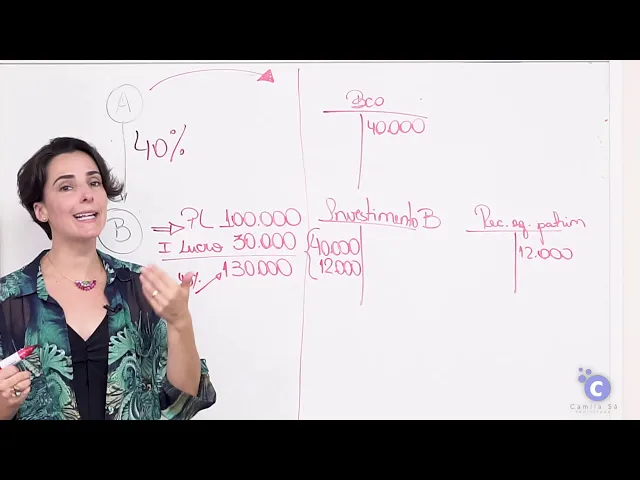 A
40%
B
PL 100.000
I Lucro 30.000
130.000
40%
Bco
40.000
Investimento B
40.000
12.000
Rec. eq. patrim
12.000
C
Camila Sá